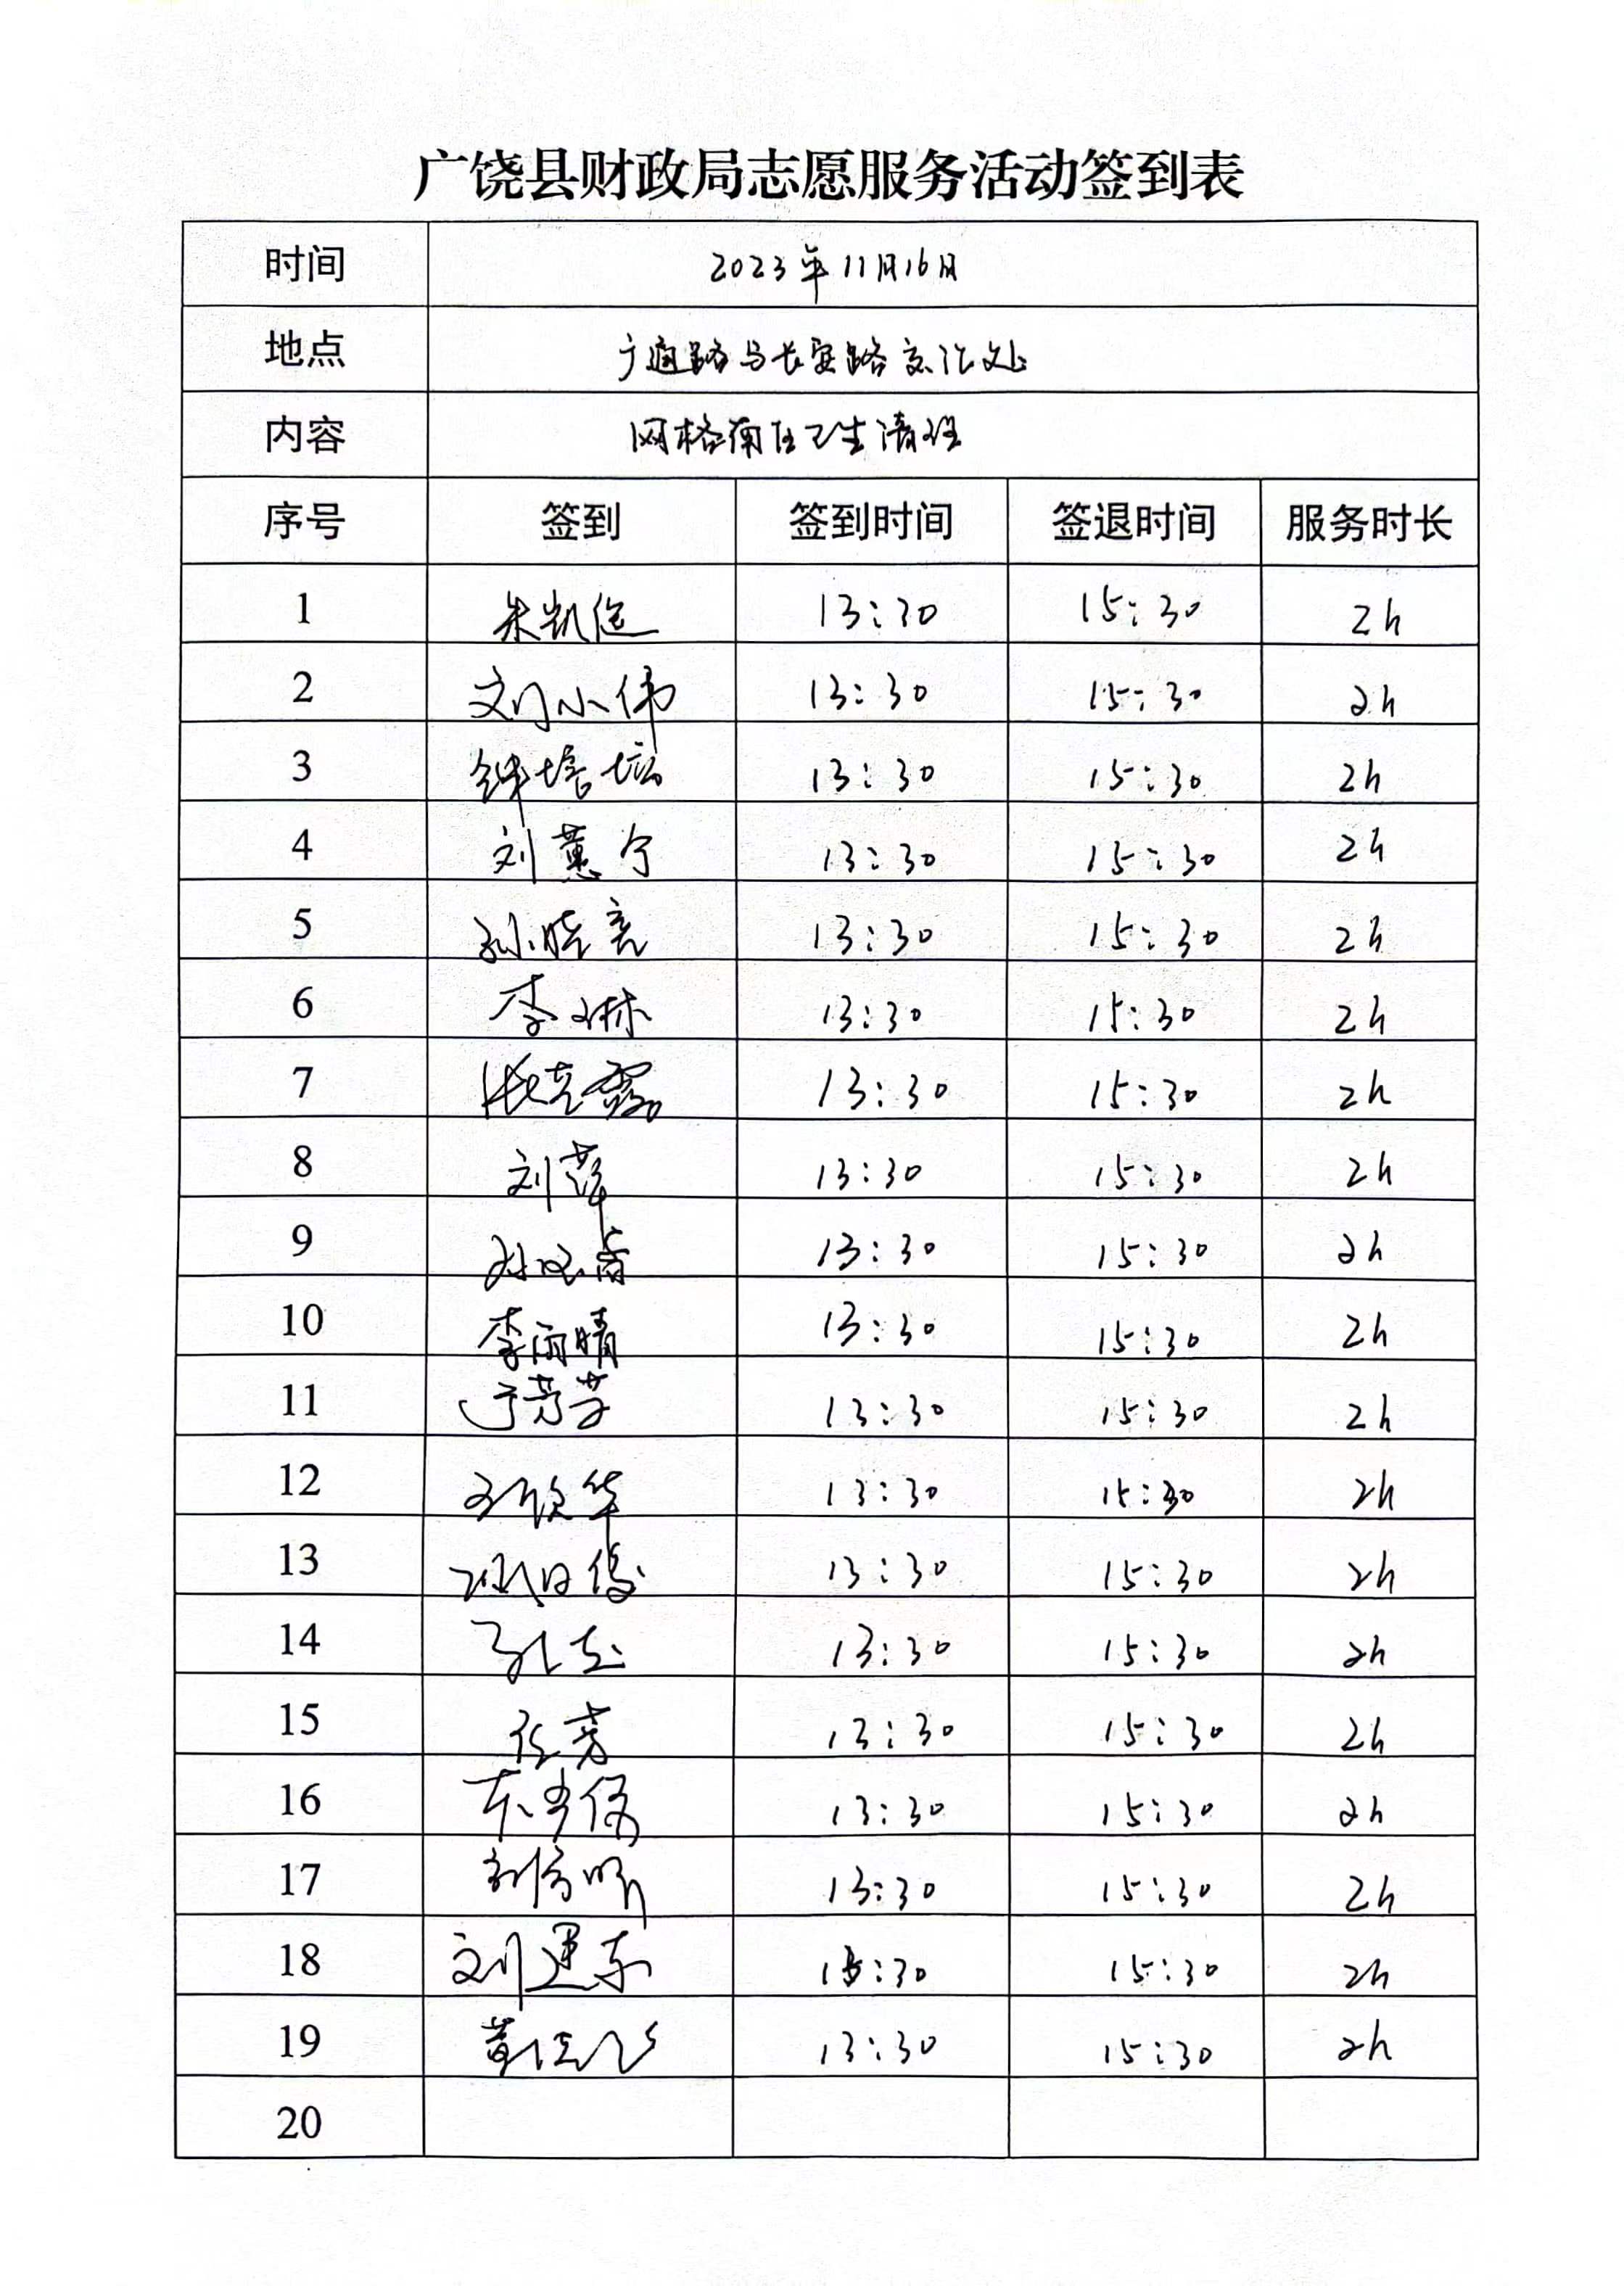 广饶县财政局志愿服务活动签到表
时间 2023年11月16日
地点 广通路与长安路交汇处
内容 网格责任区卫生清理
序号 签到 签到时间 签退时间 服务时长
1 朱凯 13:30 15:30 2h
2 刘小伟 13:30 15:30 2h
3 13:30 15:30 2h
4 刘蕙宁 13:30 15:30 2h
5 孙晓亮 13:30 15:30 2h
6 李琳 13:30 15:30 2h
7 张克霞 13:30 15:30 2h
8 刘萍 13:30 15:30 2h
9 13:30 15:30 2h
10 李雨晴 13:30 15:30 2h
11 于芳芳 13:30 15:30 2h
12 华 13:30 15:30 2h
13 13:30 15:30 2h
14 13:30 15:30 2h
15 任芳 13:30 15:30 2h
16 13:30 15:30 2h
17 13:30 15:30 2h
18 刘建东 13:30 15:30 2h
19 13:30 15:30 2h
20